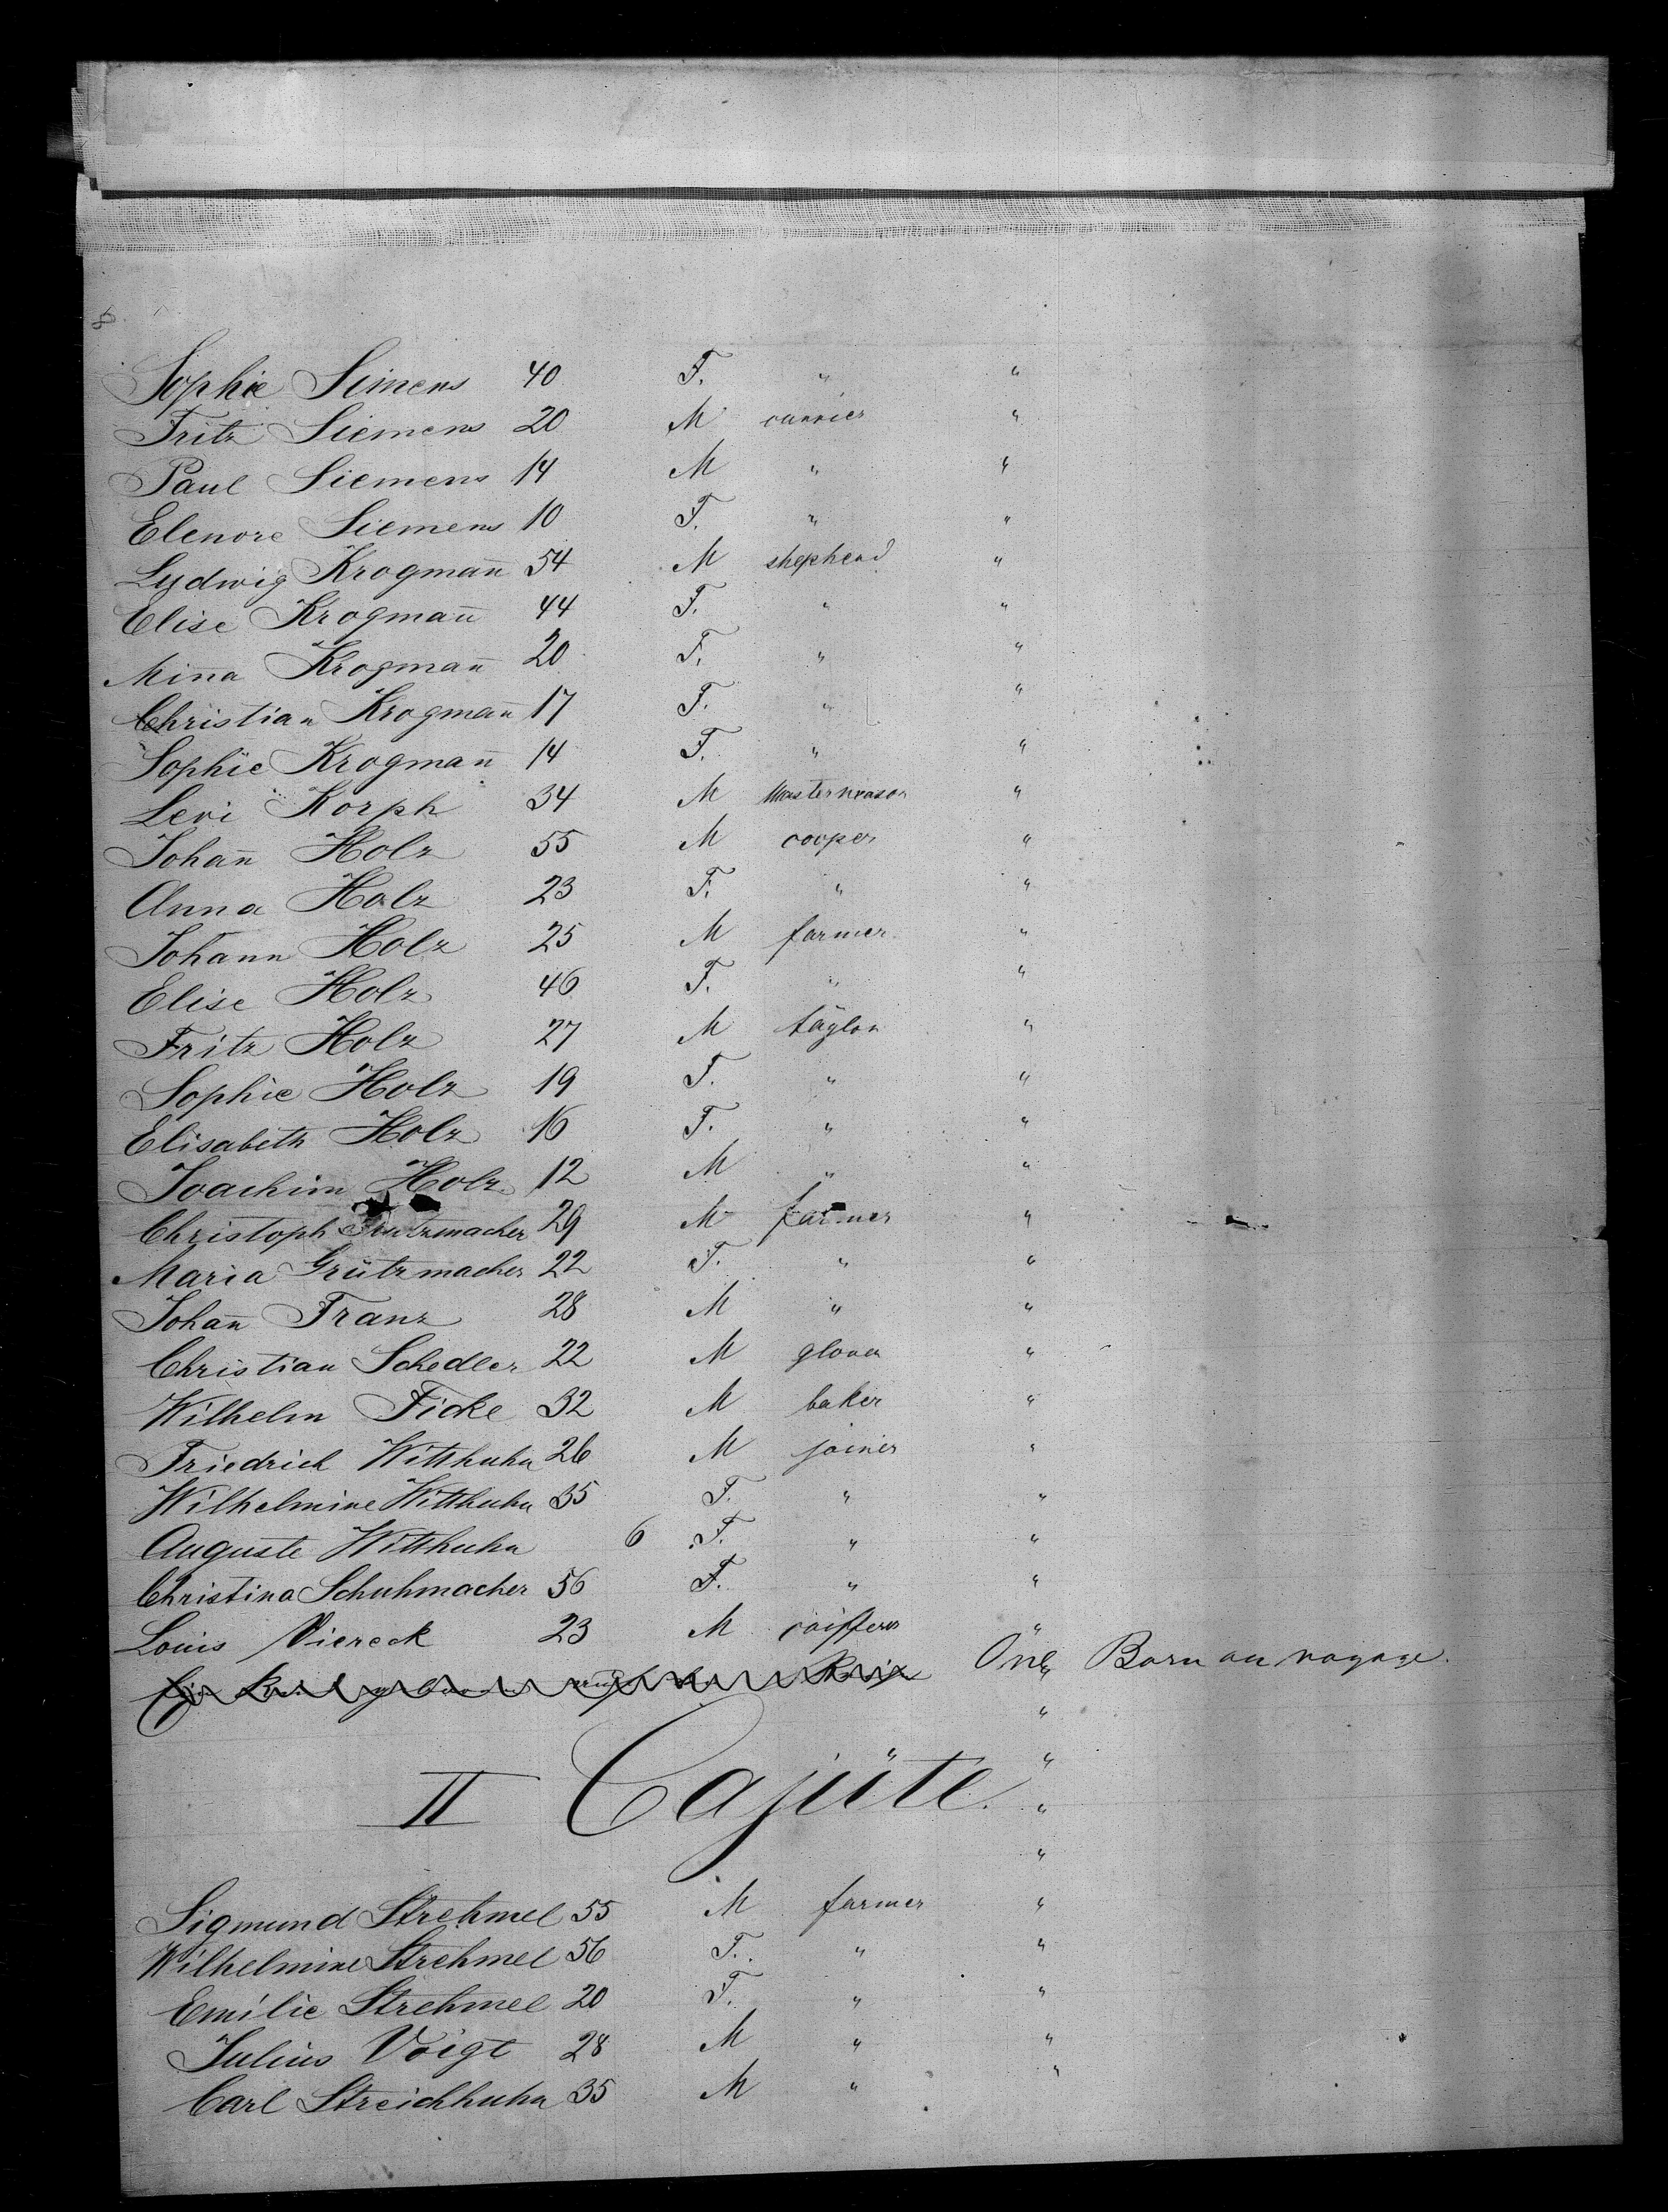 Sophie Simens 40 F. " "
Fritz Siemens 20 M currier "
Paul Siemens 14 M " "
Elenore Siemens 10 F. " "
Lydwig Krogmañ 54 M shepherd "
Elise Krogmañ 44 F. " "
Miña Krogmañ 20 F. " "
Christian Krogmañ 17 F. " "
Sophie Krogmañ 14 F. " "
Levi Korph 34 M Mastermason "
Johañ Holz 55 M cooper "
Anna Holz 23 F. " "
Johann Holz 25 M farmer "
Elise Holz 46 F. " "
Fritz Holz 27 M "
Sophie Holz 19 F. " "
Elisabeth Holz 16 F. " "
Joachim Holz 12 M " "
Christoph 29 M farmer "
Maria Grützmacher 22 F. " "
Johañ Franz 28 M " "
Christian Schedler 22 M glover "
Wilhelm Ficke 32 M baker "
Friedrich Witthuhn 26 M joiner "
Wilhelmine Witthuhn 35 F. " "
Auguste Witthuhn 6 F. " "
Christina Schuhmacher 56 F. " "
Louis Viereck 23 M "
One " Born on voyage.
"
II Cajüte. "
"
"
Sigmund Strehmel 55 M farmer "
Wilhelmine Strehmel 56 F. " "
Emilie Strehmel 20 F. " "
Julius Voigt 28 M " "
Carl Streichhuhn 35 M " "